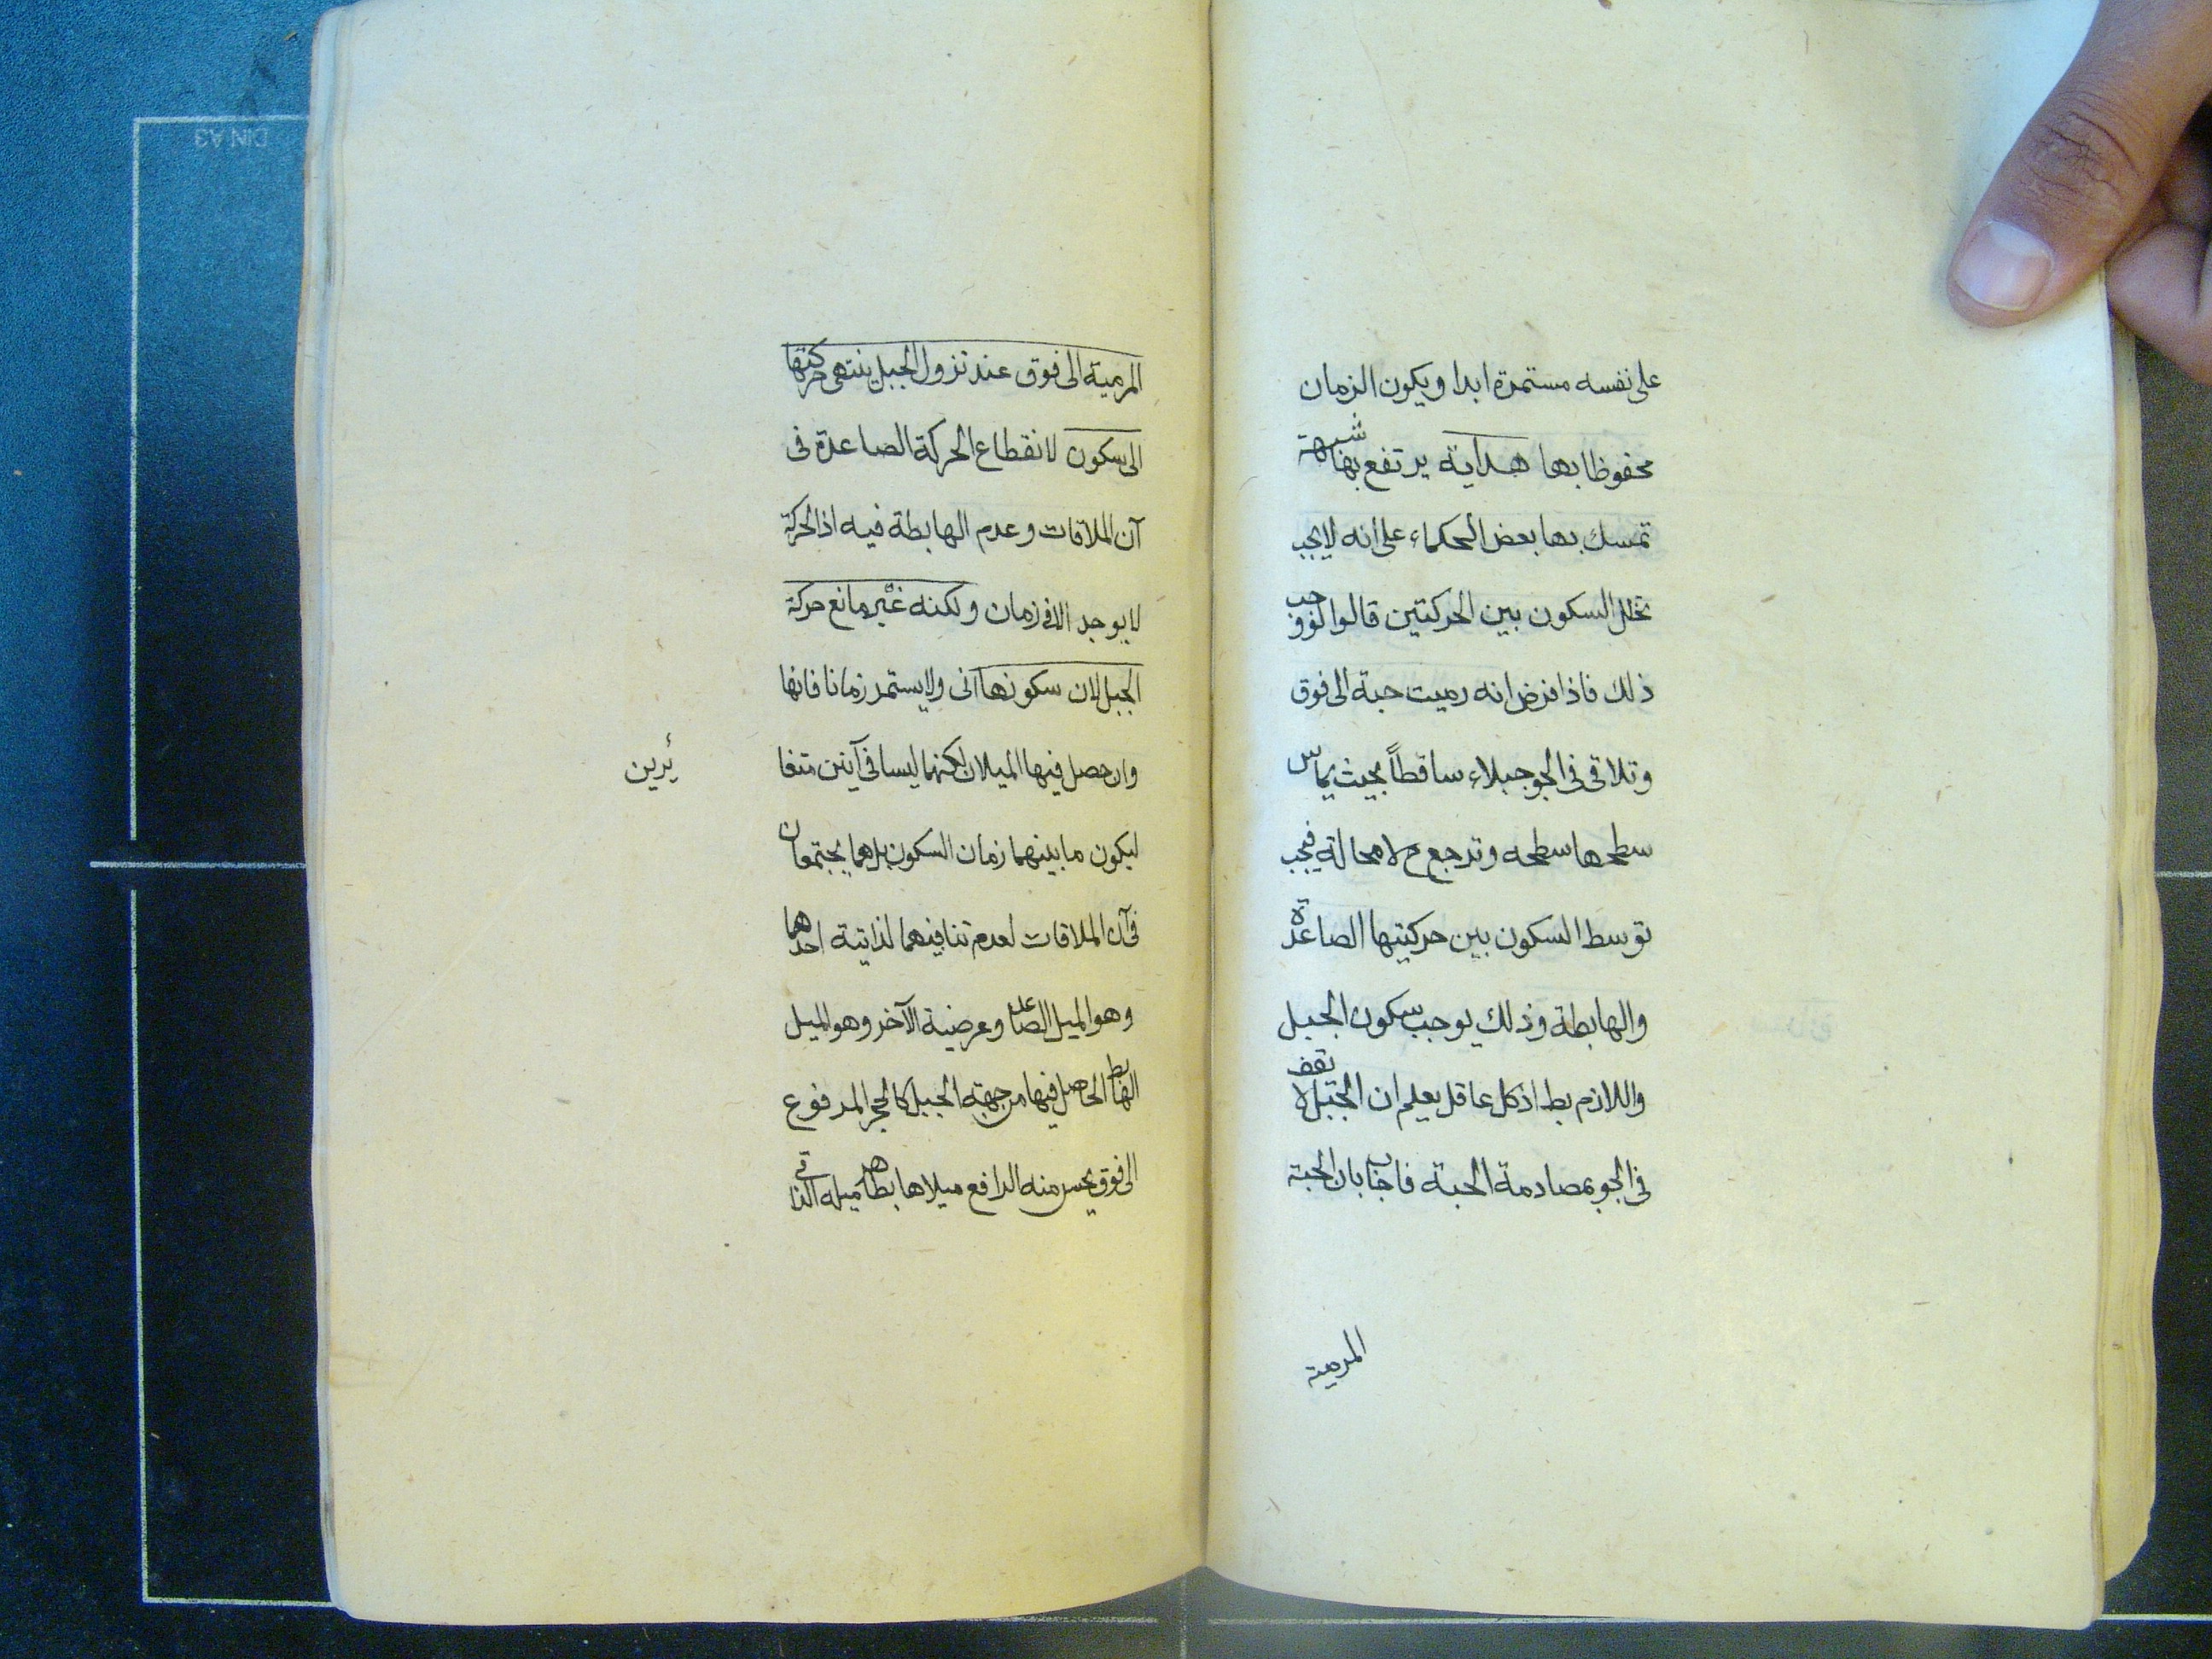 على نفسه مستمرة ابدا ويكون الزمان
محفوظا بها هداية يرتفع بها شبهة
تمسك بها بعض الحكماء على انه لا يجب
تخلل السكون بين الحركتين قالوا لو وجب
ذلك فاذا فرض انه رميت حبة الى فوق
وتلاقى فى الجو جبلاء ساقطاً بحيث يماس
سطحها سطحه وترجع ح لا محالة فيجب
توسط السكون بين حركتيها الصاعدة
والهابطة وذلك يوجب سكون الجبل
واللازم بط اذ كل عاقل يعلم ان الجبل لا تقف
فى الجو بمصادمة الحبة فاجاب بان الحبة
المرمية
المرمية الى فوق عند نزول الجبل ينتهى حركتها
الى سكون لانقطاع الحركة الصاعدة فى
آن الملاقات وعدم الهابطة فيه اذ الحركة
لا يوجد الا فى زمان ولكنه غير مانع حركة
الجبل لان سكونها آنى ولا يستمر زمانا فانها
وان حصل فيها الميلان لكنهما ليسا فى آنين متغا
ئرين
ليكون ما بينهما زمان السكون بل هما يجتمعان
فى آن الملاقات لعدم تنافيهما لذاتية احدهما
وهو الميل الصاعد وعرضية الآخر وهو الميل
الهابط الحاصل فيها من جهة الجبل كالحجر المدفوع
الى فوق يحس منه الدافع ميلا هابطا هو ميله الذاتى